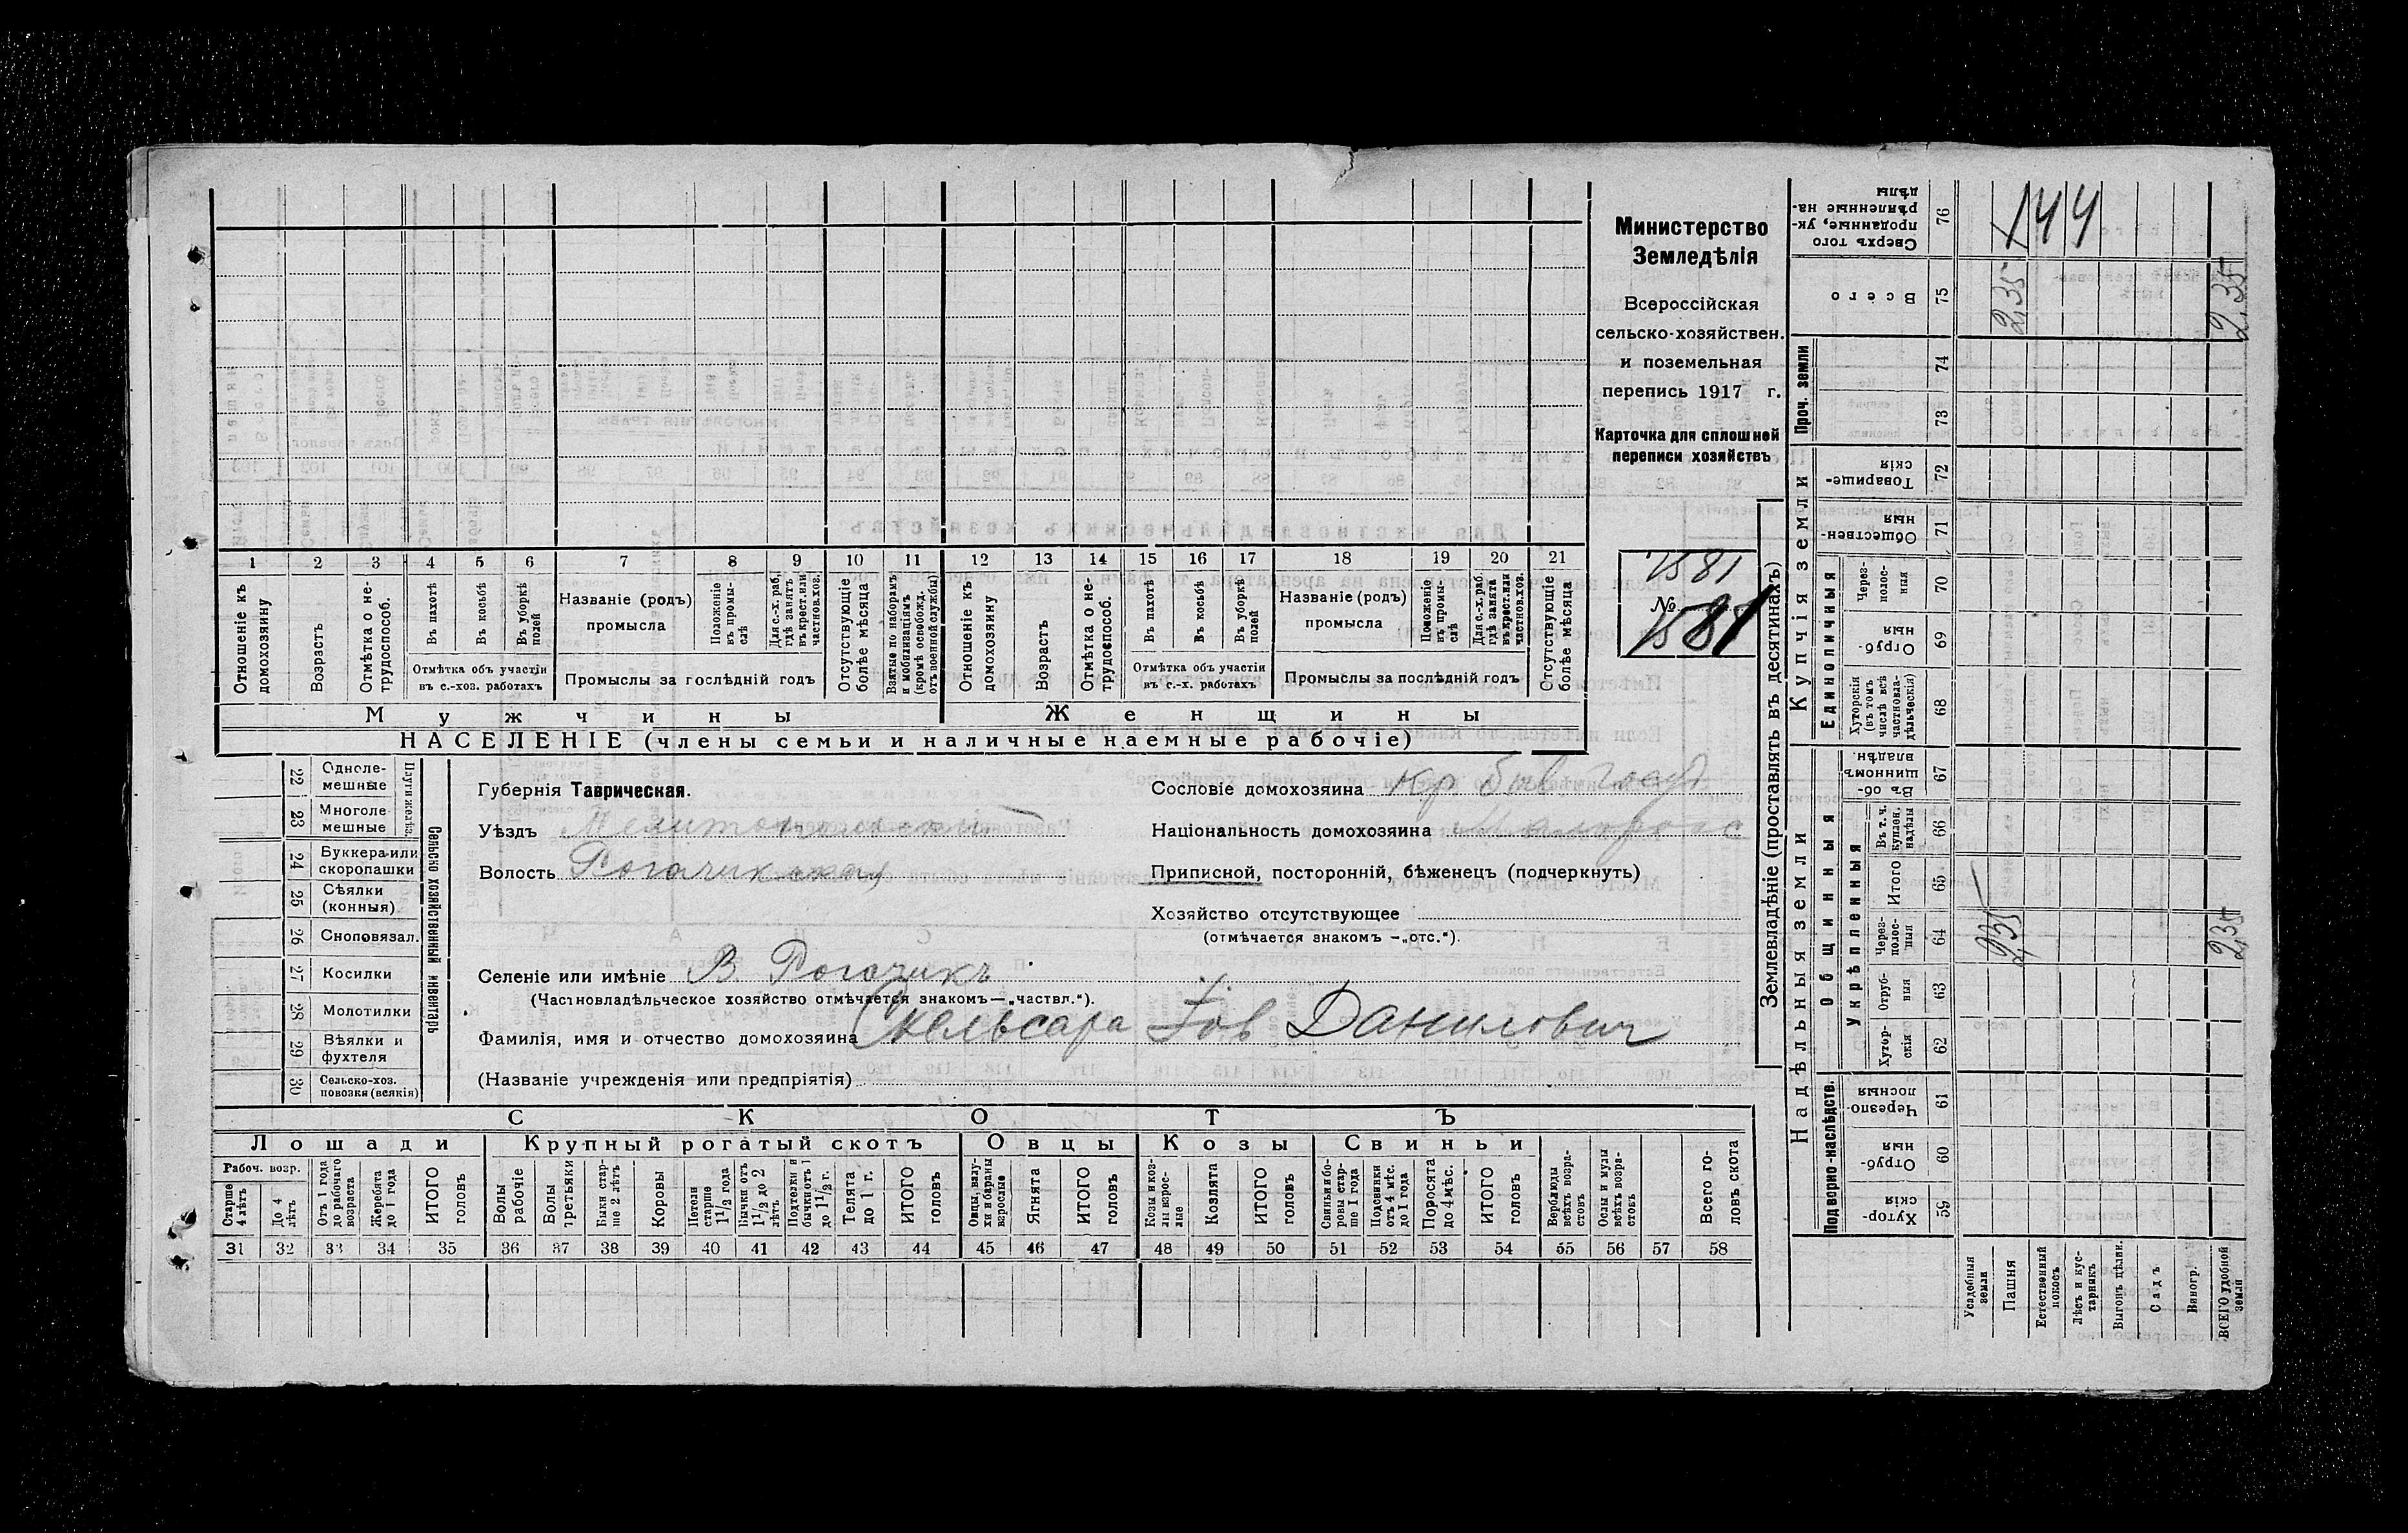 Министерство
Земледѣлія
Всероссійская
сельско-хозяйствен.
и поземельная
перепись 1917 г.
Карточка для сплошней
переписи хозяйствъ
1581
№
1581
1 2 3 4 5 6 7 8 9 10 11 12 13 14 15 16 17 18 19 20 21
Отношеніе къ домохозяину
Возрастъ
Отмѣтка о не-трудоспособ.
Въ пахотѣ
Въ косьбѣ
Въ уборкѣ полей
Отмѣтка объ участіи въ с.-хоз. работахъ
Названіе (родъ) промысла
Положеніе въ промы-слѣ
Для с.-х. раб, гдѣ занятъ въ крест. или частнов. хоз.
Промыслы за гослѣдній годъ
Отсутствующіе болѣе мѣсяца
Взятые по наборамъ и мобилизаціямъ (кромѣ освобожд. отъ военной службы)
Отношеніе къ домохозяину
Возрастъ
Отмѣтка о не-трудоспособ.
Въ пахотѣ
Въ косьбѣ
Въ уборкѣ полей
Отмѣтка объ участіи въ с.-х. работахъ
Названіе (родъ) промысла
Положеніе въ промы-слѣ
Для с.-х. раб. гдѣ занята въ крест. или частнов. хоз.
Промыслы за послѣдній годъ
Отсутствующіе болѣе мѣсяца
Мужчины
Женщины
НАСЕЛЕНІЕ (члены семьи и наличные наемные рабочіе)
22 Одноле-мешные
23 Многоле мешные
Плуги желѣз.
24 Буккера или скоропашки
25 Сѣялки (конныя)
26 Сноповязал.
27 Косилки
28 Молотилки
29 Вѣялки и фухтеля
30 Сельско-хоз. повозки (всякія)
Сельско хозяйственный инвентарь
Губернія Таврическая.
Уѣздъ Мелитопольский
Волость Рогачикская
Селеніе или имѣніе В. Рогачикъ
(Частновладѣльческое хозяйство отмѣчается знакомъ—„частвл.“).
Фамилія, имя и отчество домохозяина Скельсара Іов Данилович
(Названіе учрежденія или предпріятія)
Сословіе домохозяина Кр быв Госуд
Національность домохозяина Малоросс
Приписной, посторонній, бѣженецъ (подчеркнуть)
Хозяйство отсутствующее
(отмѣчается знакомъ —„отс.“).
СКОТЪ
Лошади
Крупный рогатый скотъ
Овцы
Козы
Свиньи
Рабоч. возр.
Старше 4 лѣтъ
До 4 лѣтъ
Отъ 1 года до рабочаго возраста
Жеребята до 1 года
ИТОГО головъ
Волы рабочіе
Волы третьяки
Быки стар-ше 2 лѣтъ
Коровы
Нетели старше 1 1/2 года
Бычки отъ 1 1/2 до 2 лѣтъ
Подтелки и бычки отъ 1 до 1 1/2 г.
Телята до 1 г.
ИТОГО головъ
Овцы, валу-хи и бараны взрослые
Ягнята
ИТОГО головъ
Козы и коз-лы взрос-лые
Козлята
ИТОГО головъ
Свиньи и бо-ровы стар-ше 1 года
Подсвинки отъ 4 мѣс. до 1 года
Поросята до 4 мѣс.
ИТОГО головъ
Верблюды всѣхъ возра-стовъ
Ослы и мулы всѣхъ возра-стовъ
Всего го-ловъ скота
31 32 33 34 35 36 37 38 39 40 41 42 43 44 45 46 47 48 49 50 51 52 53 54 55 56 57 58
Землевладѣніе (проставлять въ десятинахъ)
Надѣльныя земли
Купчія земли
Проч. земли
Подворно-наслѣдств.
Общинныя
Укрѣпленныя
Единоличныя
Сверхъ того проданные, ук-рѣпленные на-дѣлы 76
144
Всего 75
2,35 2,35
74
73
Товарище-скія 72
Обществен-ныя 71
Через-полос-ныя 70
Отруб-ныя 69
Хуторскія (въ томъ числѣ всѣ частновла-дѣльческія) 68
Въ об-щинномъ владѣн. 67
Въ т. ч. куплен. надѣлы 66
Итого 65
Через-полос-ныя 64
2,35 2,35
Отруб-ныя 63
Хутор-скія 62
Черезпо-лосныя 61
Отруб-ныя 60
Хутор-скія 59
Усадебныя земли
Пашня
Естественный покосъ
Лѣсъ и кус-тарникъ
Выгонъ дѣлян.
Садъ
Виногр.
ВСЕГО удобной земли